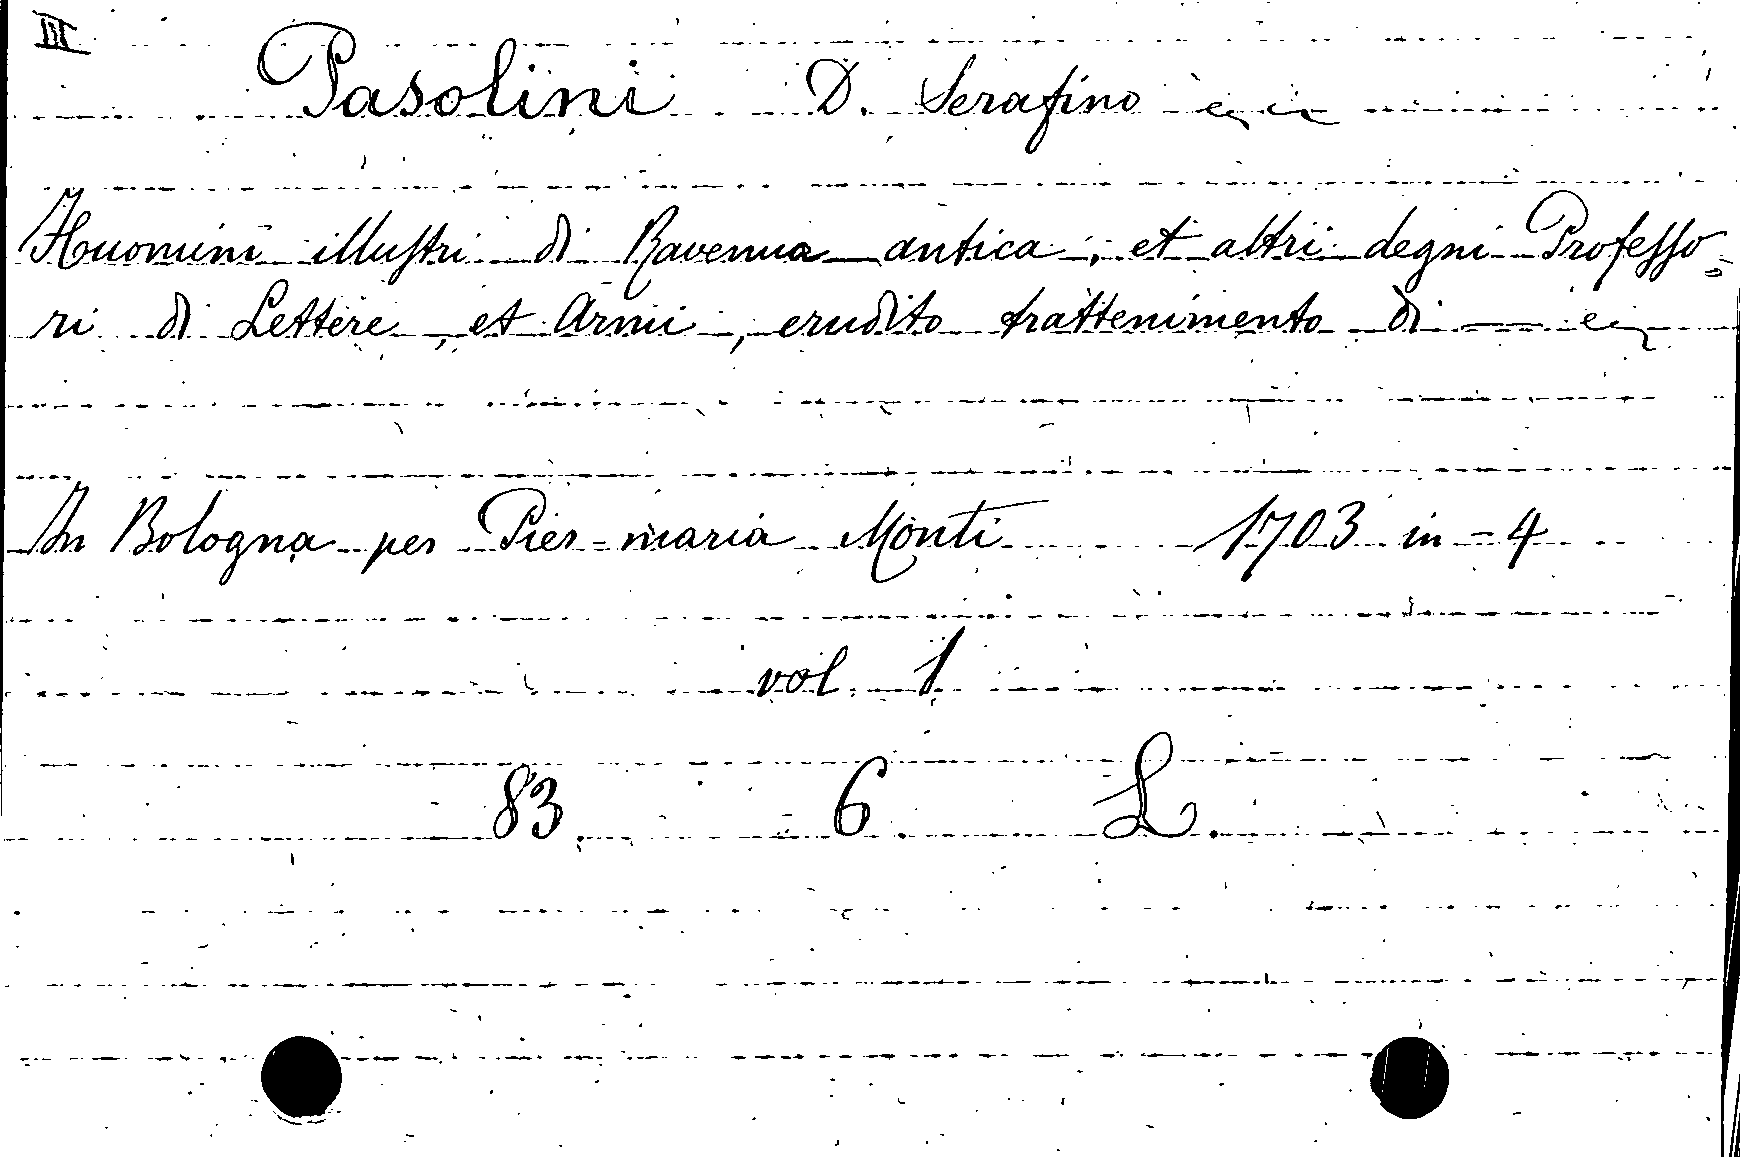 III
Pasolini D. Serafino
Huomini illustri di Ravenna antica, et altri degni Professo=
ri di Lettere, et Armi, erudito trattenimento di —
In Bologna per Pier-maria Monti 1703 in-4
vol. 1
83. 6. L.